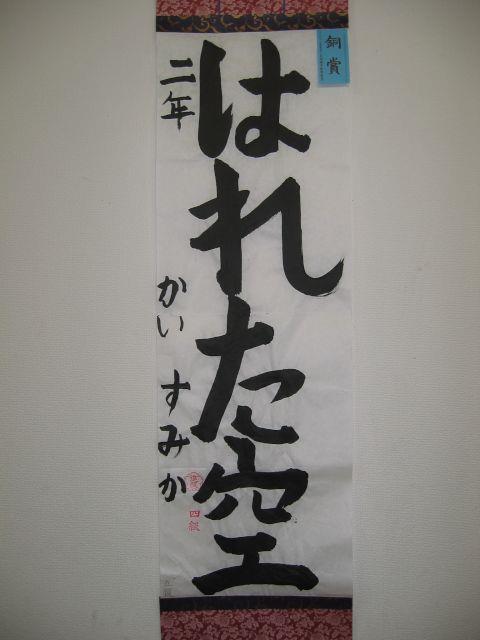 銅賞
はれた空
二年 かい すみか
四級